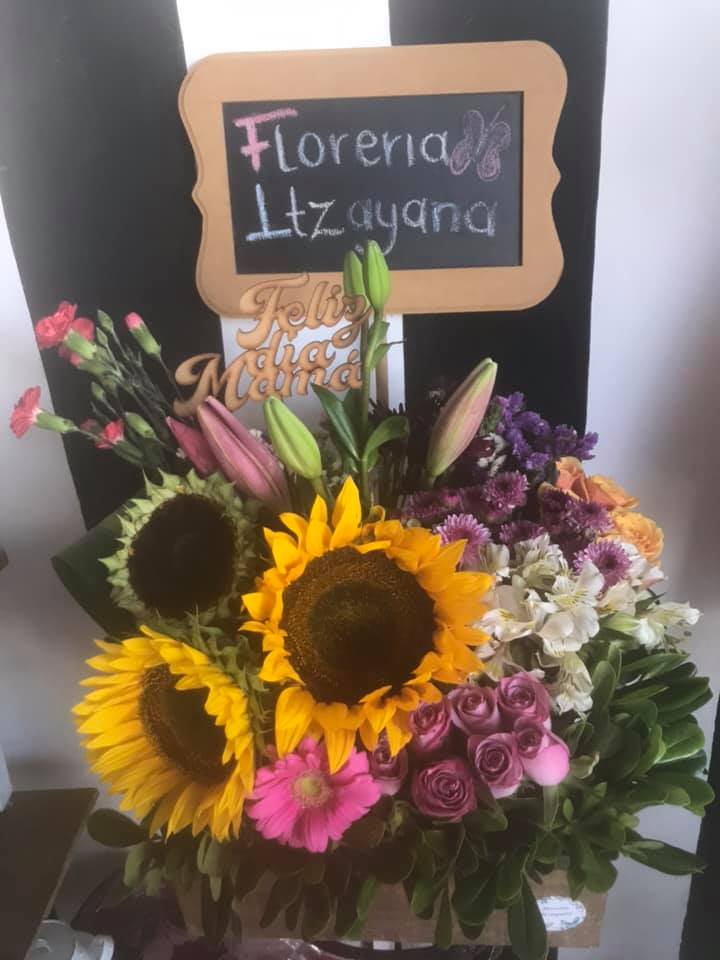 Floreria
Itzayana
Feliz
día
Mamá